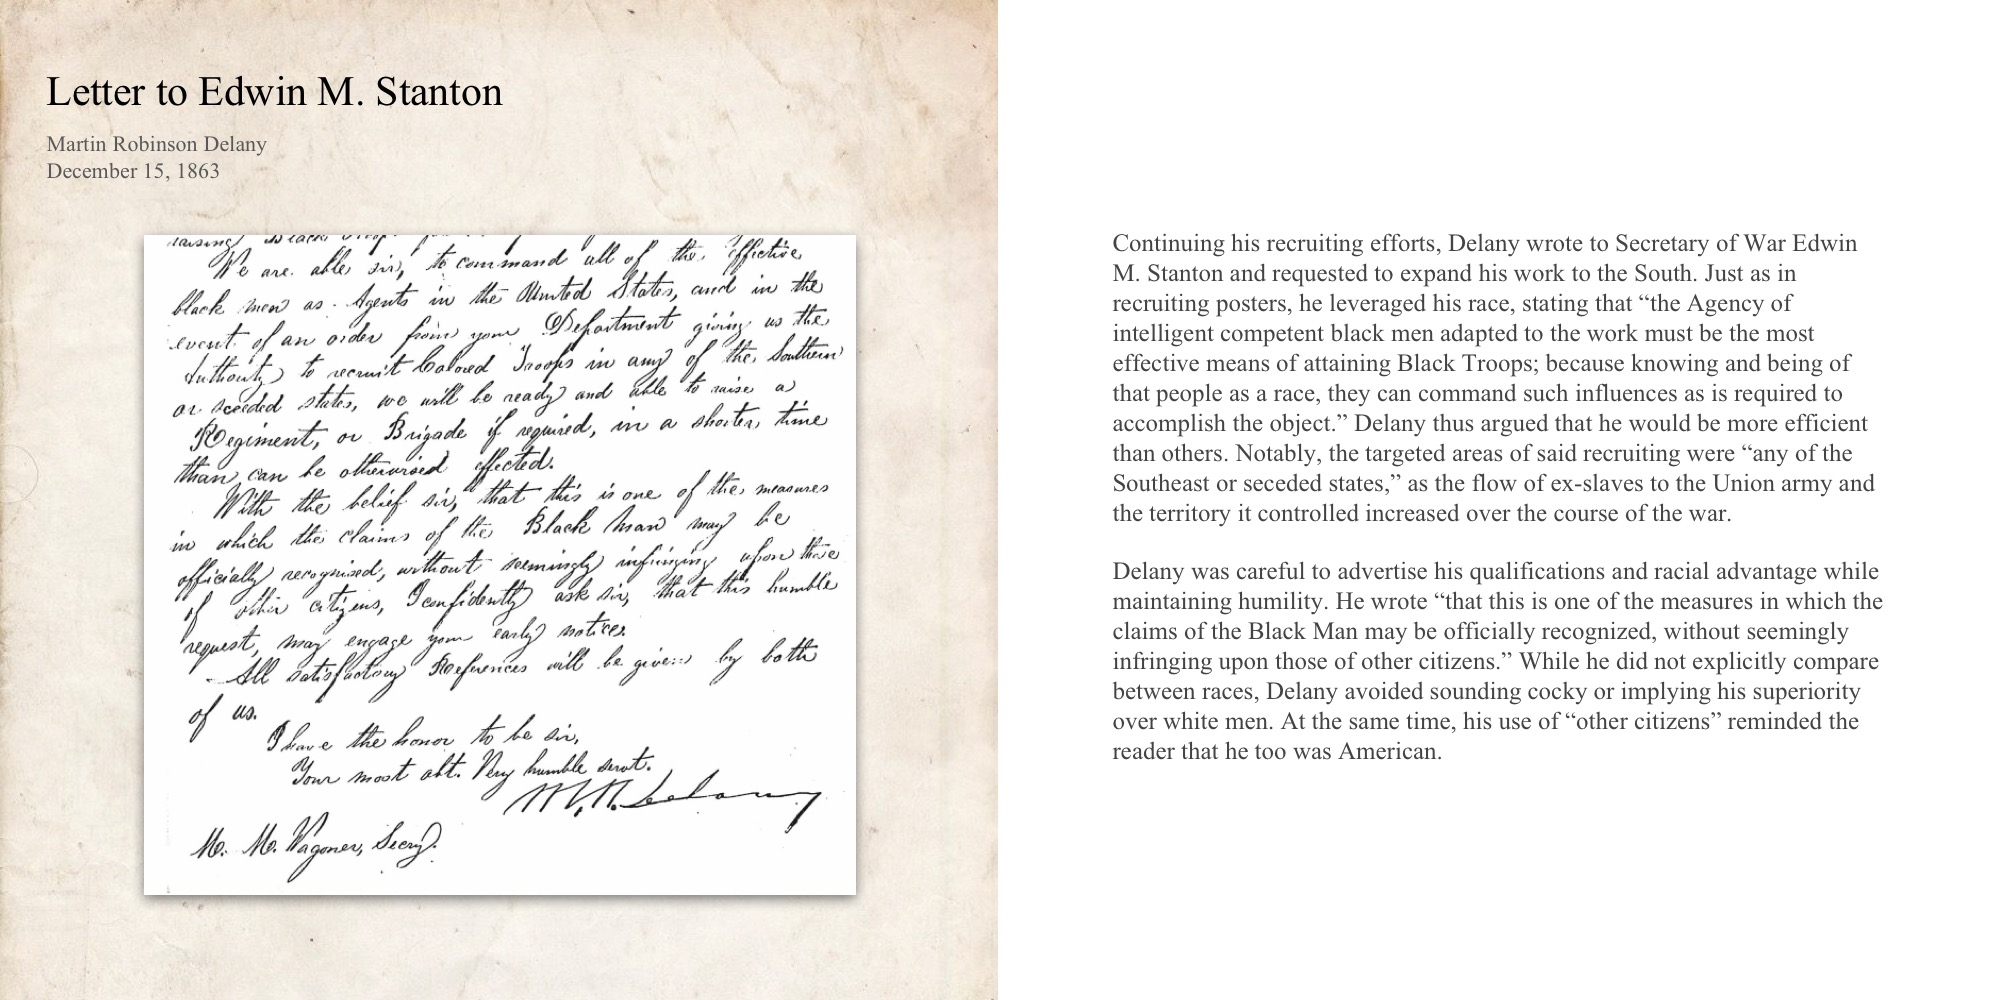 Letter to Edwin M. Stanton
Martin Robinson Delany
December 15, 1863
raising Black Troops
We are able sir, to command all of the effective
black men as Agents in the United States, and in the
event of an order from your Department giving us the
Authority to recruit Colored Troops in any of the Southern
or seceded states, we will be ready and able to raise a
Regiment, or Brigade if required, in a shorter time
than can be otherwised effected.
With the belief sir, that this is one of the measures
in which the claims of the Black Man may be
officially recognised, without seemingly infringing upon those
of other citizens, I confidently ask sir, that this humble
request, may engage your early notice.
All satisfactory References will be given by both
of us.
I have the honor to be sir,
Your most obt. Very humble servt.
M. R. Delany
M. M. Wagoner, Secry.
Continuing his recruiting efforts, Delany wrote to Secretary of War Edwin
M. Stanton and requested to expand his work to the South. Just as in
recruiting posters, he leveraged his race, stating that “the Agency of
intelligent competent black men adapted to the work must be the most
effective means of attaining Black Troops; because knowing and being of
that people as a race, they can command such influences as is required to
accomplish the object.” Delany thus argued that he would be more efficient
than others. Notably, the targeted areas of said recruiting were “any of the
Southeast or seceded states,” as the flow of ex-slaves to the Union army and
the territory it controlled increased over the course of the war.
Delany was careful to advertise his qualifications and racial advantage while
maintaining humility. He wrote “that this is one of the measures in which the
claims of the Black Man may be officially recognized, without seemingly
infringing upon those of other citizens.” While he did not explicitly compare
between races, Delany avoided sounding cocky or implying his superiority
over white men. At the same time, his use of “other citizens” reminded the
reader that he too was American.